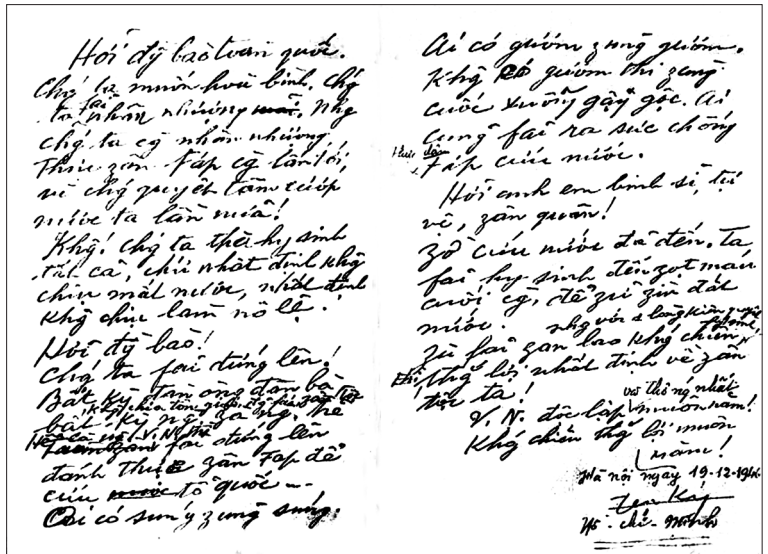 Hỡi đg bào toàn quốc.
Chg ta muốn hoà bình, chg
ta fải nhân nhượng. Nhg
chg ta cg nhân nhượng
thực zân Fáp cg lấn tới,
vì chg quyết tâm cướp
nước ta lần nữa!
Khg! chg ta thà hy sinh
tất cả, chứ nhất định khg
chịu mất nước, nhất định
khg chịu làm nô lệ.
Hỡi đg bào!
Chg ta fải đứng lên!
Bất kỳ đàn ông đàn bà
bất kỳ ng già ng trẻ
k chia tôn giáo đg fái zân tộc
Hễ là ng V.N. thì
fải đứng lên
đánh thực zân Fáp để
cứu tổ quốc --
Ai có súng zùng súng.
Ai có gươm zùng gươm.
Khg có gươm thì zùng
cuốc xuổng gậy gộc. Ai
cũng fải ra sức chống
thực dân
Fáp cứu nước.
Hỡi anh em binh sĩ, tự
vệ, zân quân!
Zờ cứu nước đã đến. Ta
fải hy sinh đến zọt máu
cuối cg, để zữ zìn đất
nước.
Zù fải zan lao khg chiến
nhg với 1 lòng kiên quyết
thg lợi nhất định về zân
tộc ta!
V.N. độc lập và thống nhất muôn năm!
Khg chiến thg lợi muôn
năm!
Hà nội ngày 19-12-1946
Hồ-chí-Minh